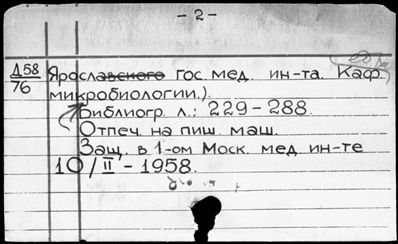 - 2 -
Д58
76
Ярославского гос. мед. ин-та. Каф.
микробиологии.).
Библиогр. л.: 229-288.
Отпеч. на пиш. маш.
Защ. в 1-ом Моск. мед. ин-те
10/II - 1958.